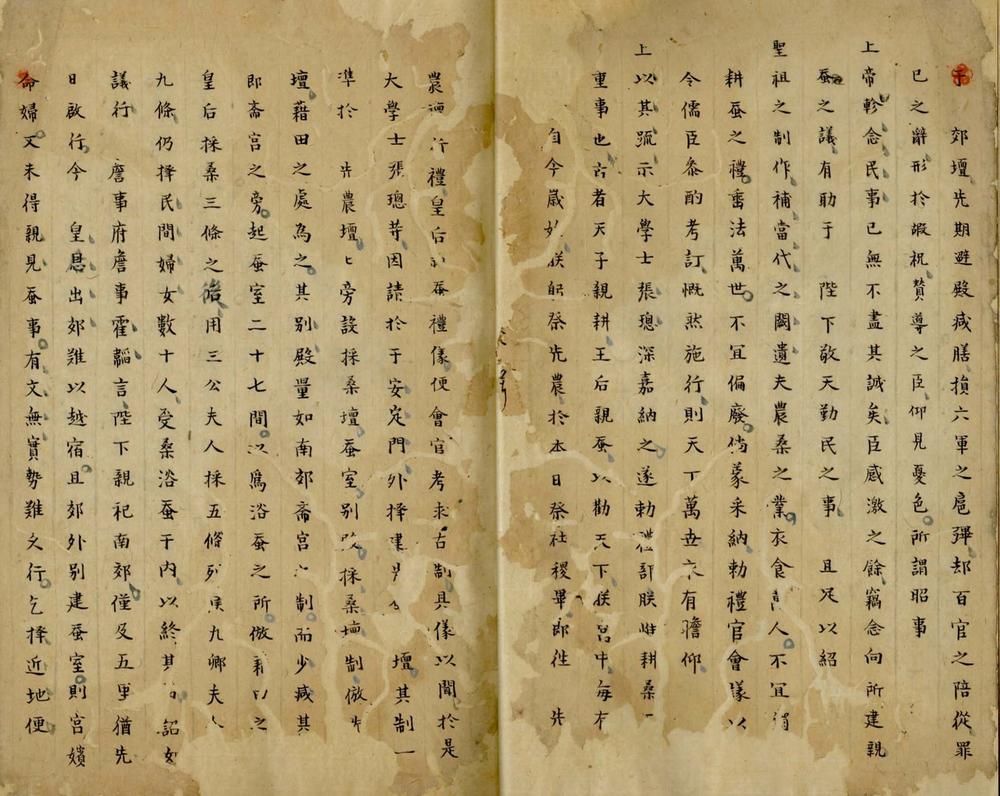 于　郊壇先期避殿减膳損六軍之扈蹕却百官之陪從罪
已之辭形於嘏祝贊導之臣仰見憂色所謂昭事
上帝軫念民事已無不盡其誠矣臣感激之餘竊念向所建親
蚕之議有助于　陛下敬天勤民之事　且足以紹
聖祖之制作補當代之闕遺夫農桑之業衣食人不冝
耕蚕之禮垂法萬世不冝偏廢倘蒙采納勅禮官會議以
令儒臣叅酌考訂慨然施行則天下萬世有瞻仰
上以其疏示大學士張璁深嘉納之遂勅禮部朕惟耕桑
重事也古者天子親耕王后親蚕以勸天下朕宮中每有
自今歲始朕躬祭先農於本日祭社稷畢即徃　先
農行禮皇后蚕禮儀便會官考求古制具儀以聞於是
大學士張璁等因請於于安定門外擇建壇其制一
準於　先農壇旁設採桑壇蚕室别殿採桑壇制倣先
壇藉田之處為之其别殿量如南郊斋宮制而少减其
即斋宮之旁起蚕室二十七間以爲浴蚕之所倣之
皇后採桑三條之儀用三公夫人採五條列侯九卿夫人
九條仍擇民間婦女數十人受桑浴蚕于内以終其　詔如
議行　詹事府詹事霍韜言陛下親祀南郊僅及五里猶先
日啟行今　皇后出郊難以越宿且郊外别建蚕室則宮嬪
命婦又未得親見蚕事有文無實勢難久行乞擇近地便